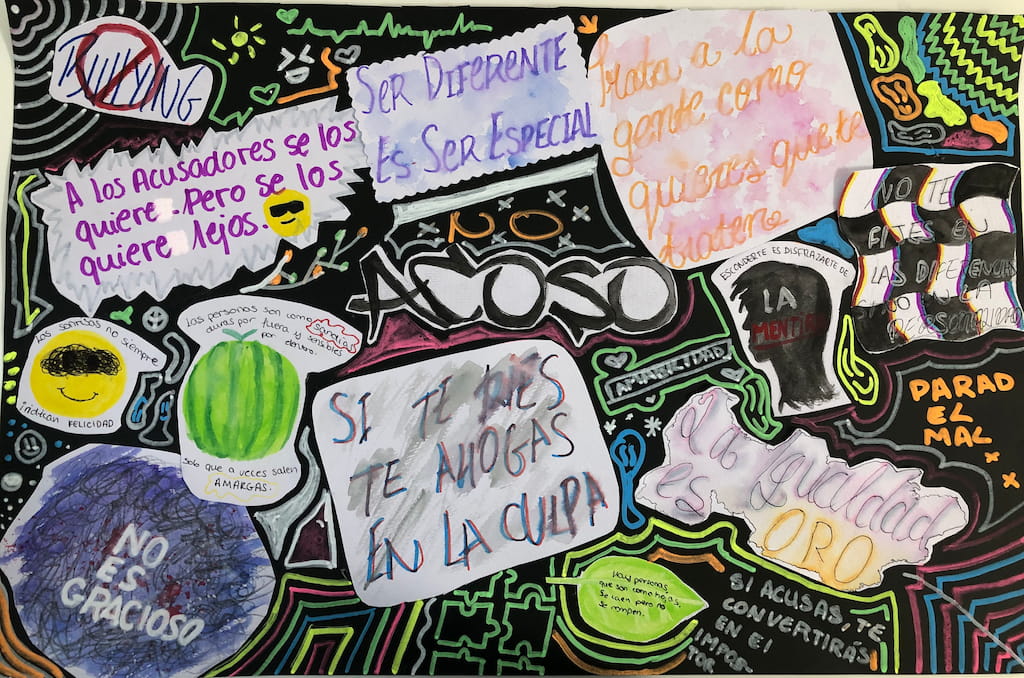 BULLYING
SER DIFERENTE
ES SER ESPECIAL
Trata a la
gente como
quieres que te
traten
A los Acusadores se los
quiere. Pero se los
quiere lejos.
NO
ACOSO
NO TE
FIJES EN
LAS DIFERENCIAS
SINO EN LA
PERSONALIDAD
ESCONDERTE ES DISFRAZARTE DE
LA
MENTIRA
Las sonrisas no siempre
indican FELICIDAD
Las personas son como sandías
duras por fuera y sensibles
por dentro.
Solo que a veces salen
AMARGAS.
SI TE RIES
TE AHOGAS
EN LA CULPA
AMABILIDAD
PARAD
EL
MAL
La igualdad
es
ORO
NO
ES
GRACIOSO
Hay personas
que son como hojas,
se caen pero no
se rompen.
SI ACUSAS, TE
CONVERTIRÁS
EN El
IMPOS-
TOR